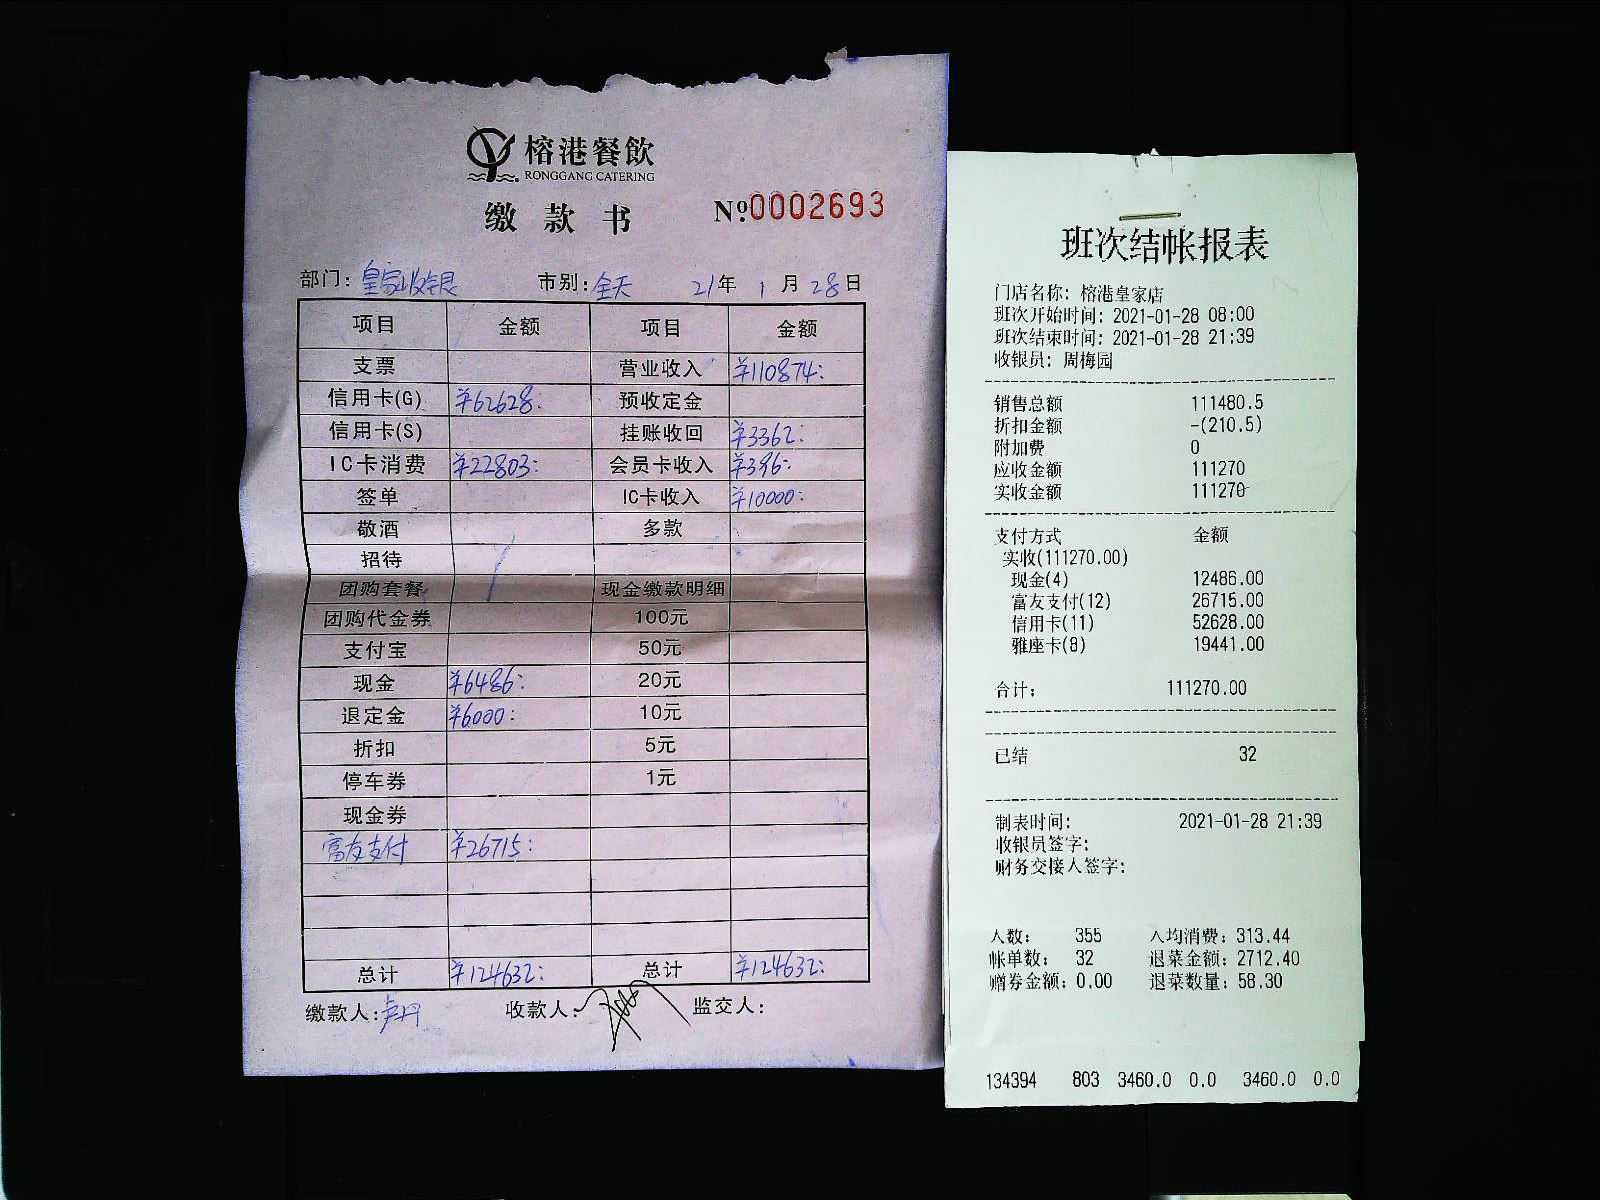 榕港餐飲
RONGGANG CATERING
缴款书
№:0002693
部门:皇家收银 市别:全天 21年1月28日
项目 金额 项目 金额
支票 营业收入 ¥110874:
信用卡(G) ¥62628: 预收定金
信用卡(S) 挂账收回 ¥3362:
IC卡消费 ¥22803: 会员卡收入 ¥396:
签单 IC卡收入 ¥10000:
敬酒 多款
招待
团购套餐 现金缴款明细
团购代金券 100元
支付宝 50元
现金 ¥6486: 20元
退定金 ¥6000: 10元
折扣 5元
停车券 1元
现金券
富友支付 ¥26715:
总计 ¥124632: 总计 ¥124632:
缴款人:卢丹 收款人: 监交人:
班次结帐报表
门店名称: 榕港皇家店
班次开始时间: 2021-01-28 08:00
班次结束时间: 2021-01-28 21:39
收银员: 周梅园
销售总额 111480.5
折扣金额 -(210.5)
附加费 0
应收金额 111270
实收金额 111270
支付方式 金额
实收(111270.00)
现金(4) 12486.00
富友支付(12) 26715.00
信用卡(11) 52628.00
雅座卡(8) 19441.00
合计: 111270.00
已结 32
制表时间: 2021-01-28 21:39
收银员签字:
财务交接人签字:
人数: 355 人均消费: 313.44
帐单数: 32 退菜金额: 2712.40
赠券金额: 0.00 退菜数量: 58.30
134394 803 3460.0 0.0 3460.0 0.0